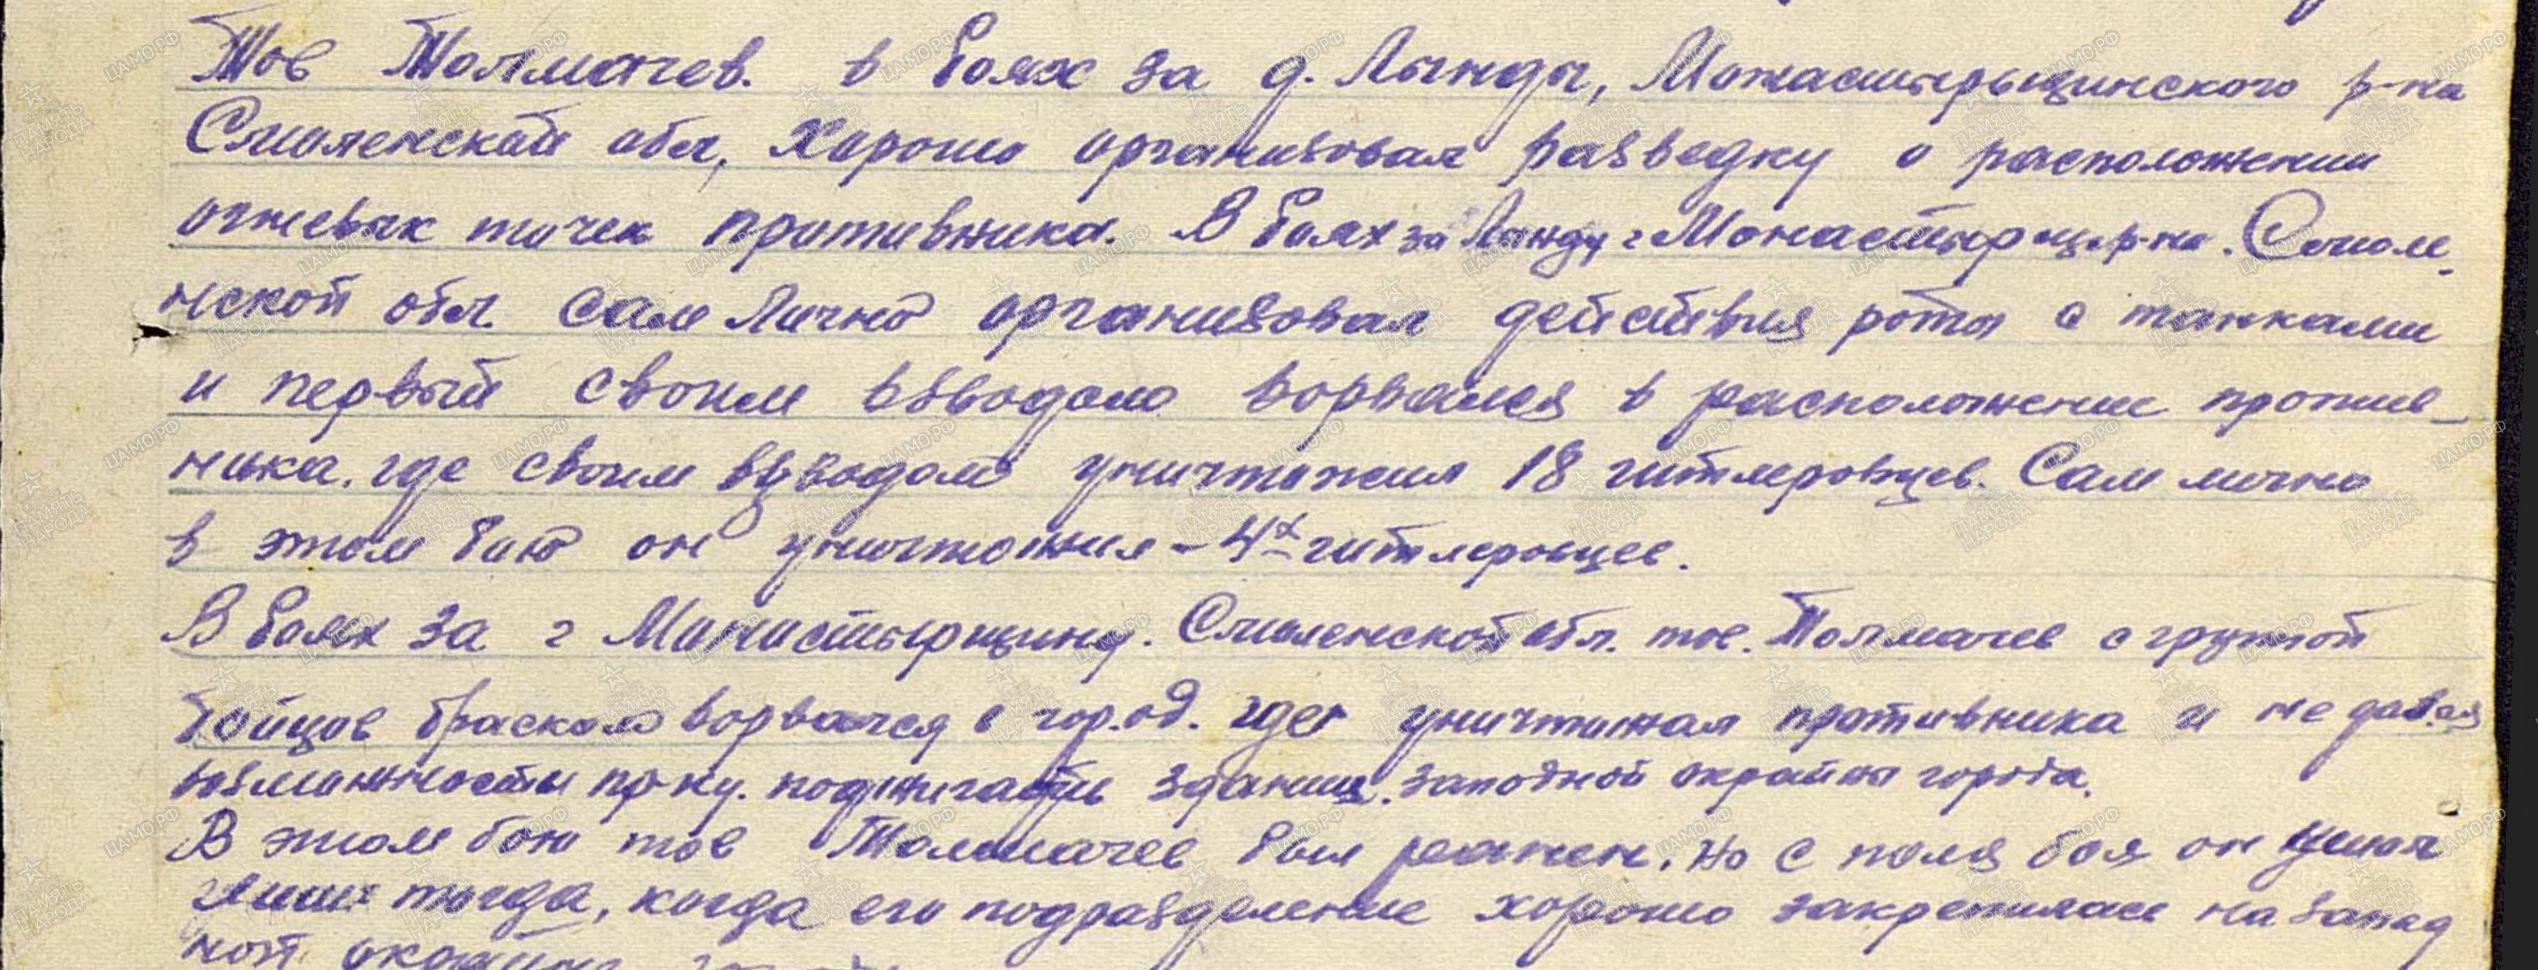 Тов Толмачев. в боях за д. Лынды, Монастырьщинского р-на
Смоленской обл, Хорошо организовал разведку о расположении
огневых точек противника. В боях за Лынды г Монастырщ. р-на. Смоле
нской обл. сам лично организовал действия роты с танками
и первый своим взводом ворвался в расположение против-
ника. где своим взводом уничтожил 18 гитлеровцев. Сам лично
в этом бою он уничтожил - 4х гитлеровцев.
В боях за г Монастырщину. Смоленской обл. тов. Толмачев с группой
бойцов броском ворвался в город. где уничтожал противника и не давая
возможности пр-ку. поджигать здания. западной окраины города.
В этом бою тов Толмачев был ранен. но с поля боя он ушел
лишь тогда, когда его подразделение хорошо закрепилась на запад
ной окраине